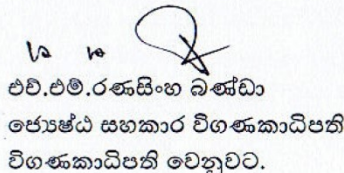 එච්.එම්.රණසිංහ බණ්ඩා
ජ්‍යෙෂ්ඨ සහකාර විගණකාධිපති
විගණකාධිපති වෙනුවට.